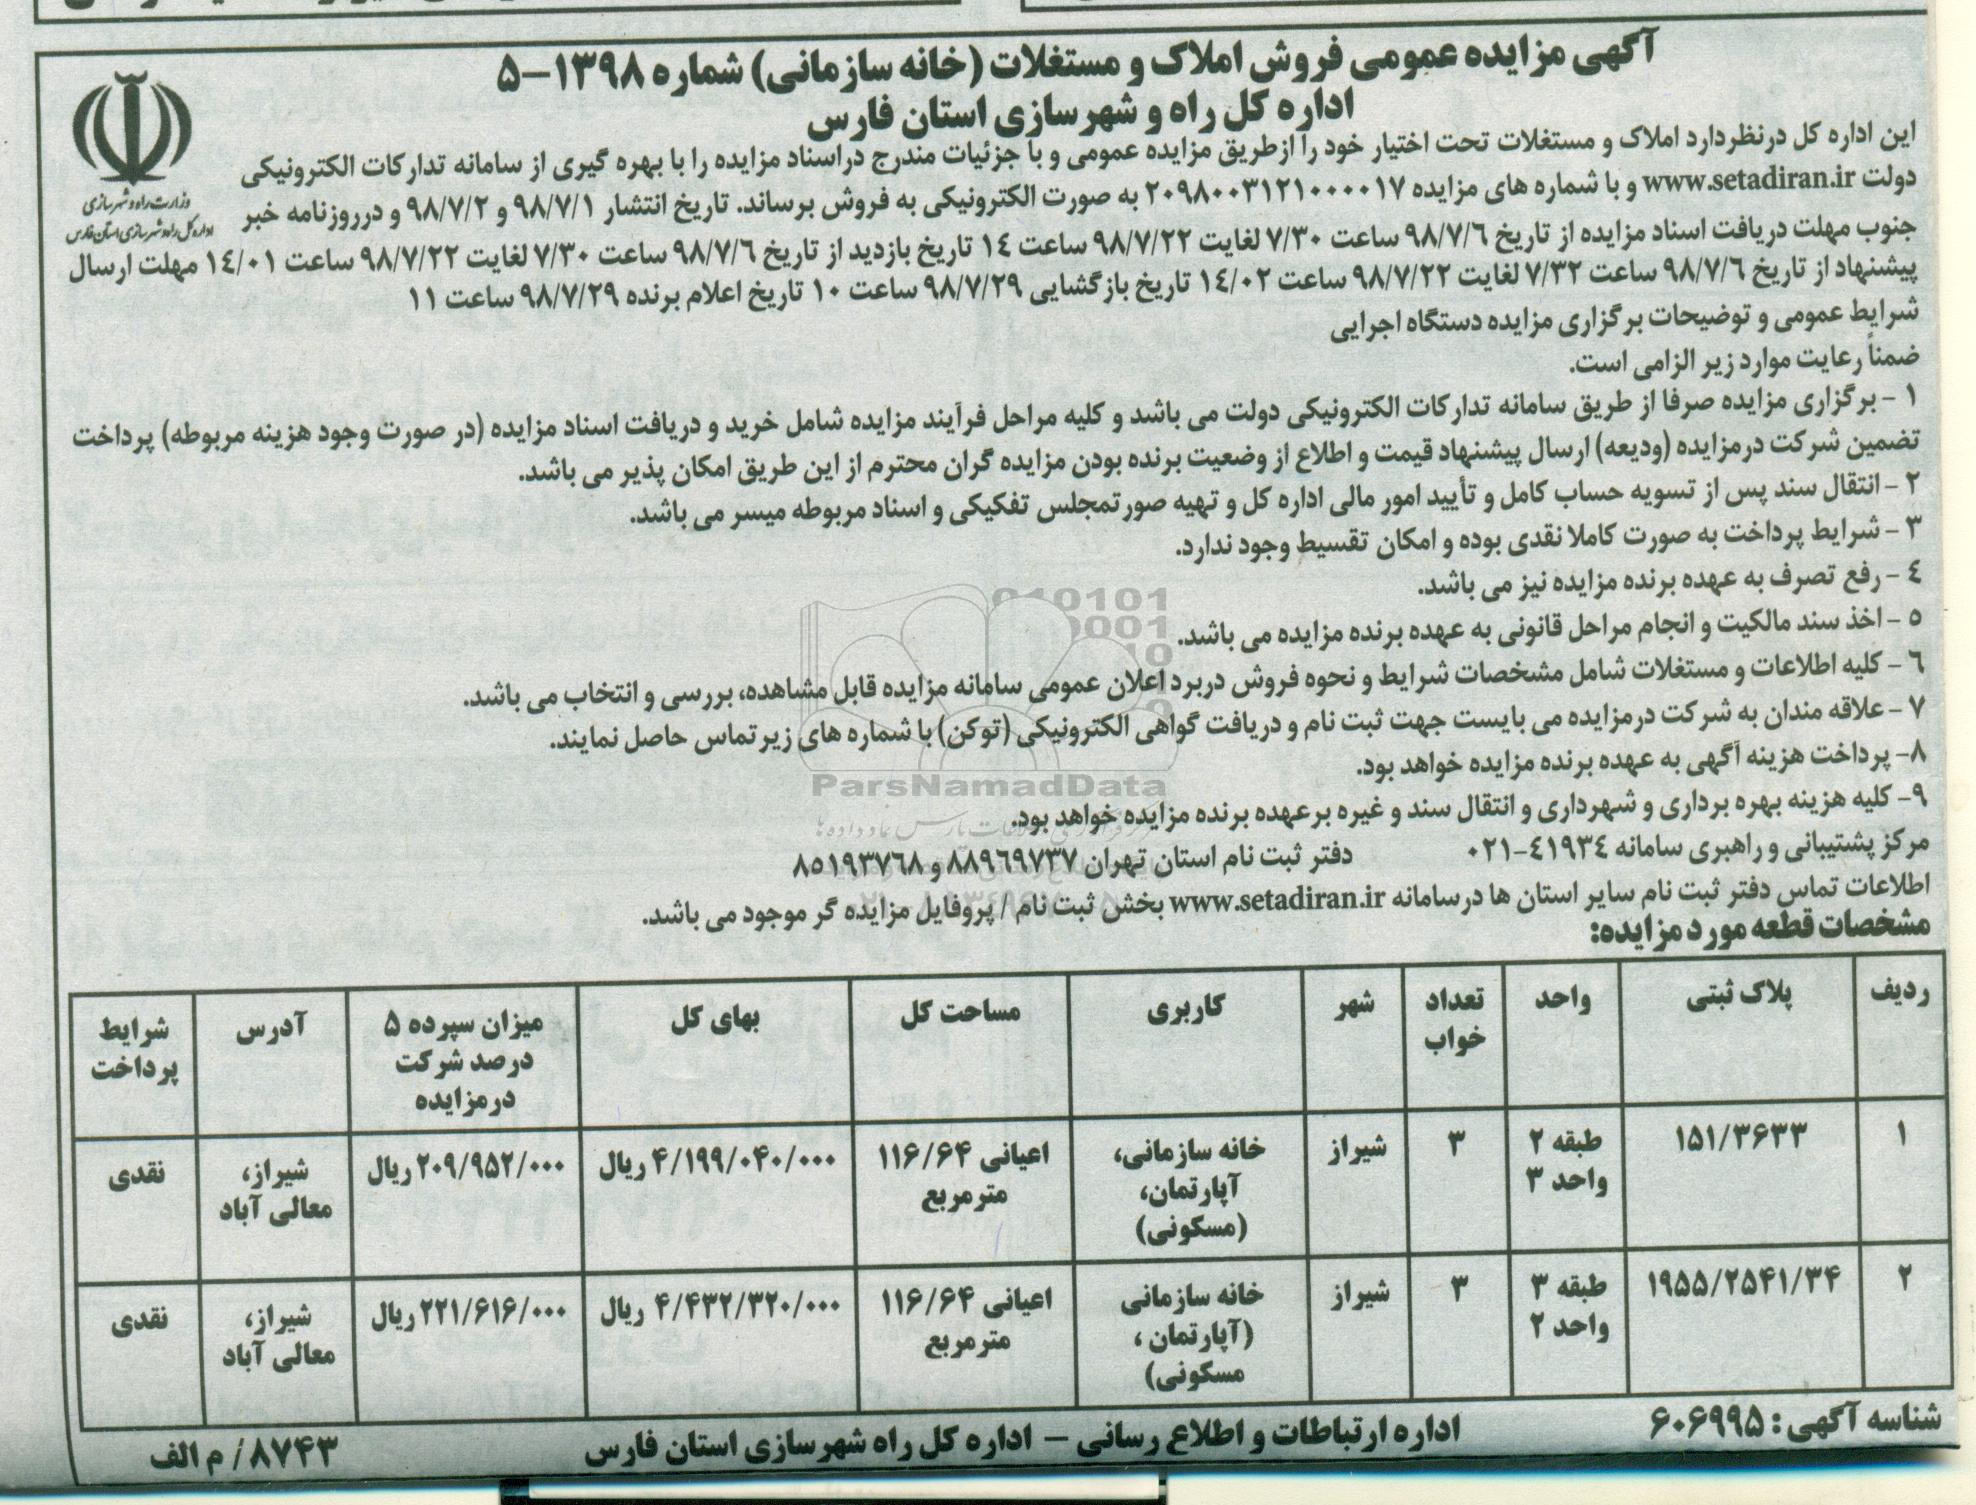 آگهی مزایده عمومی فروش املاک و مستغلات (خانه سازمانی) شماره ۱۳۹۸–۵
اداره کل راه و شهرسازی استان فارس
وزارت راه و شهرسازی
اداره کل راه و شهرسازی استان فارس
این اداره کل درنظردارد املاک و مستغلات تحت اختیار خود را ازطریق مزایده عمومی و با جزئیات مندرج دراسناد مزایده را با بهره گیری از سامانه تدارکات الکترونیکی
دولت www.setadiran.ir و با شماره های مزایده ۲۰۹۸۰۰۳۱۲۱۰۰۰۰۱۷ به صورت الکترونیکی به فروش برساند. تاریخ انتشار ۹۸/۷/۱ و ۹۸/۷/۲ و درروزنامه خبر
جنوب مهلت دریافت اسناد مزایده از تاریخ ۹۸/۷/۶ ساعت ۷/۳۰ لغایت ۹۸/۷/۲۲ ساعت ۱۴ تاریخ بازدید از تاریخ ۹۸/۷/۶ ساعت ۷/۳۰ لغایت ۹۸/۷/۲۲ ساعت ۱۴/۰۱ مهلت ارسال
پیشنهاد از تاریخ ۹۸/۷/۶ ساعت ۷/۳۲ لغایت ۹۸/۷/۲۲ ساعت ۱۴/۰۲ تاریخ بازگشایی ۹۸/۷/۲۹ ساعت ۱۰ تاریخ اعلام برنده ۹۸/۷/۲۹ ساعت ۱۱
شرایط عمومی و توضیحات برگزاری مزایده دستگاه اجرایی
ضمناً رعایت موارد زیر الزامی است.
۱ - برگزاری مزایده صرفا از طریق سامانه تدارکات الکترونیکی دولت می باشد و کلیه مراحل فرآیند مزایده شامل خرید و دریافت اسناد مزایده (در صورت وجود هزینه مربوطه) پرداخت
تضمین شرکت درمزایده (ودیعه) ارسال پیشنهاد قیمت و اطلاع از وضعیت برنده بودن مزایده گران محترم از این طریق امکان پذیر می باشد.
۲ - انتقال سند پس از تسویه حساب کامل و تأیید امور مالی اداره کل و تهیه صورتمجلس تفکیکی و اسناد مربوطه میسر می باشد.
۳ - شرایط پرداخت به صورت کاملا نقدی بوده و امکان تقسیط وجود ندارد.
۴ - رفع تصرف به عهده برنده مزایده نیز می باشد.
۵ - اخذ سند مالکیت و انجام مراحل قانونی به عهده برنده مزایده می باشد.
۶ - کلیه اطلاعات و مستغلات شامل مشخصات شرایط و نحوه فروش دربرد اعلان عمومی سامانه مزایده قابل مشاهده، بررسی و انتخاب می باشد.
۷ - علاقه مندان به شرکت درمزایده می بایست جهت ثبت نام و دریافت گواهی الکترونیکی (توکن) با شماره های زیرتماس حاصل نمایند.
۸- پرداخت هزینه آگهی به عهده برنده مزایده خواهد بود.
ParsNamadData
۹- کلیه هزینه بهره برداری و شهرداری و انتقال سند و غیره برعهده برنده مزایده خواهد بود.
مرکز پشتیبانی و راهبری سامانه ۴۱۹۳۴-۰۲۱ دفتر ثبت نام استان تهران ۸۸۹۶۹۷۳۷ و ۸۵۱۹۳۷۶۸
اطلاعات تماس دفتر ثبت نام سایر استان ها درسامانه www.setadiran.ir بخش ثبت نام / پروفایل مزایده گر موجود می باشد.
مشخصات قطعه مورد مزایده:
ردیف پلاک ثبتی واحد تعداد خواب شهر کاربری مساحت کل بهای کل میزان سپرده ۵ درصد شرکت درمزایده آدرس شرایط پرداخت
۱ ۱۵۱/۳۶۳۳ طبقه ۲ واحد ۳ ۳ شیراز خانه سازمانی، آپارتمان، (مسکونی) اعیانی ۱۱۶/۶۴ مترمربع ۴/۱۹۹/۰۴۰/۰۰۰ ریال ۲۰۹/۹۵۲/۰۰۰ ریال شیراز، معالی آباد نقدی
۲ ۱۹۵۵/۲۵۴۱/۳۴ طبقه ۳ واحد ۲ ۳ شیراز خانه سازمانی (آپارتمان ، مسکونی) اعیانی ۱۱۶/۶۴ مترمربع ۴/۴۳۲/۳۲۰/۰۰۰ ریال ۲۲۱/۶۱۶/۰۰۰ ریال شیراز، معالی آباد نقدی
شناسه آگهی: ۶۰۶۹۹۵ اداره ارتباطات و اطلاع رسانی – اداره کل راه شهرسازی استان فارس ۸۷۴۳/ م الف